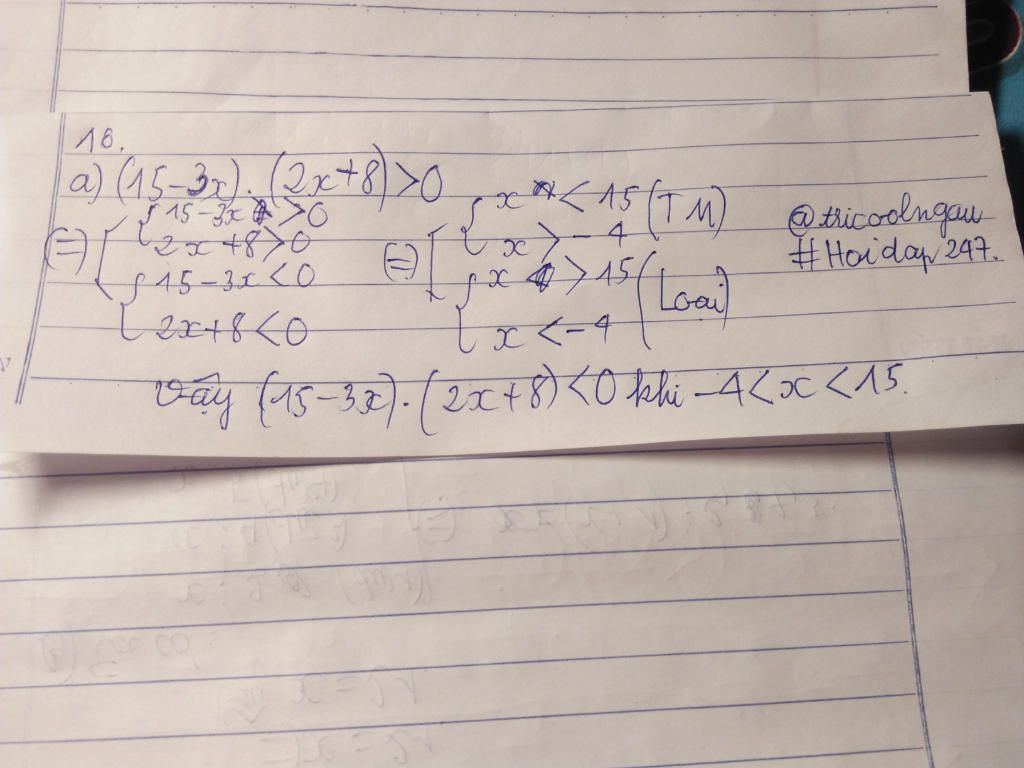 18.
a) (15-3x).(2x+8)>0
(=) [ { 15-3x >0
2x+8>0
{ 15-3x<0
2x+8<0
(=) [ { x <15 (TM)
x >-4
{ x >15 (Loại)
x <-4
@tricoolngau
#Hoidap247.
Vậy (15-3x).(2x+8)<0 khi -4<x<15.